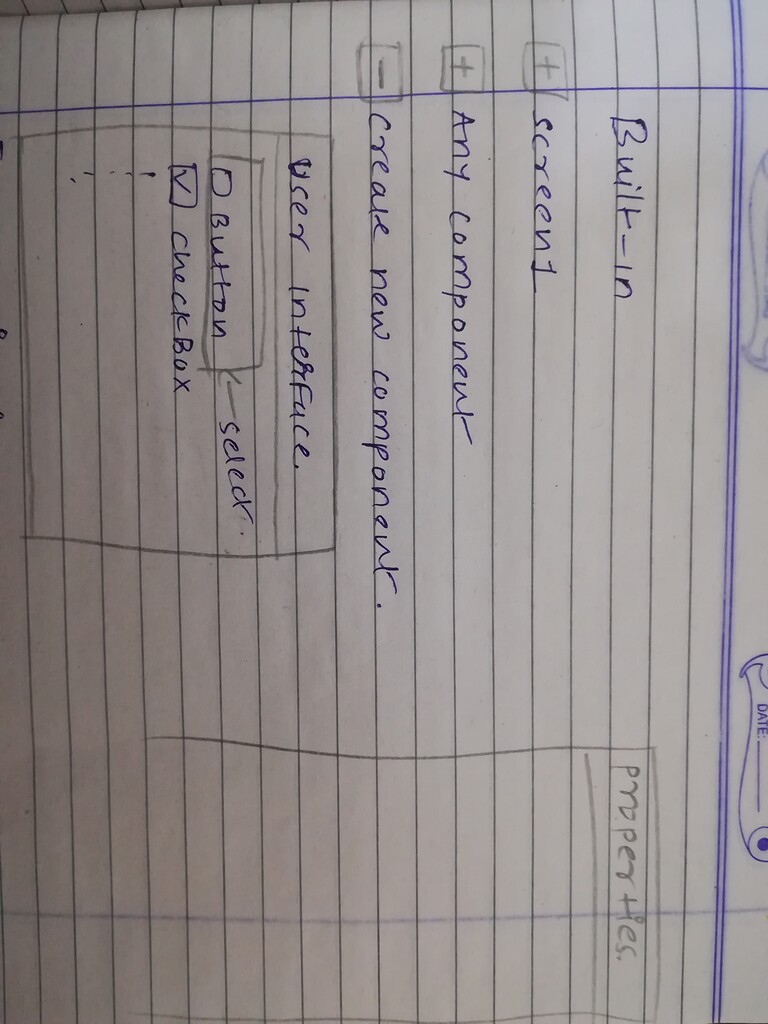 DATE:
Built-in
properties.
+ screen1
+ Any component
- create new component.
User Interface.
Button ← select.
checkBox